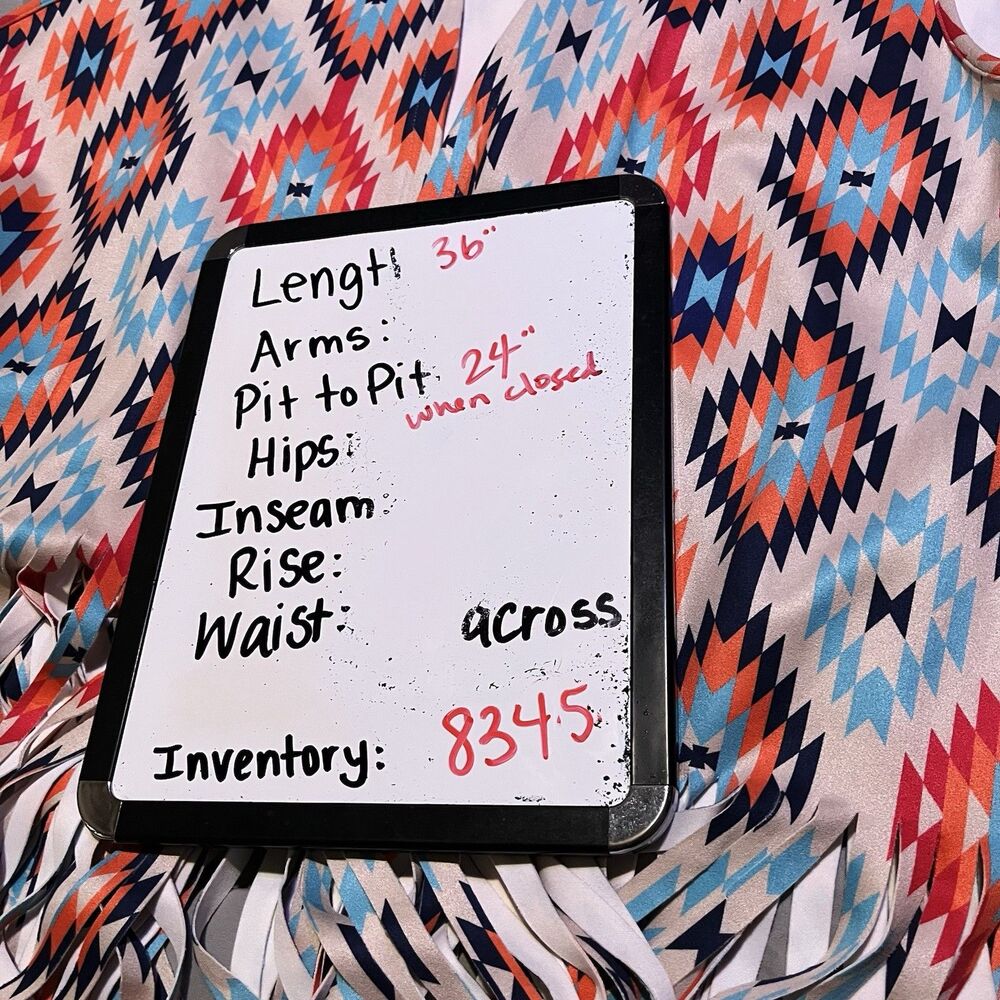 Length 36"
Arms:
Pit to Pit 24"
when closed
Hips:
Inseam
Rise:
Waist: across
Inventory: 8345